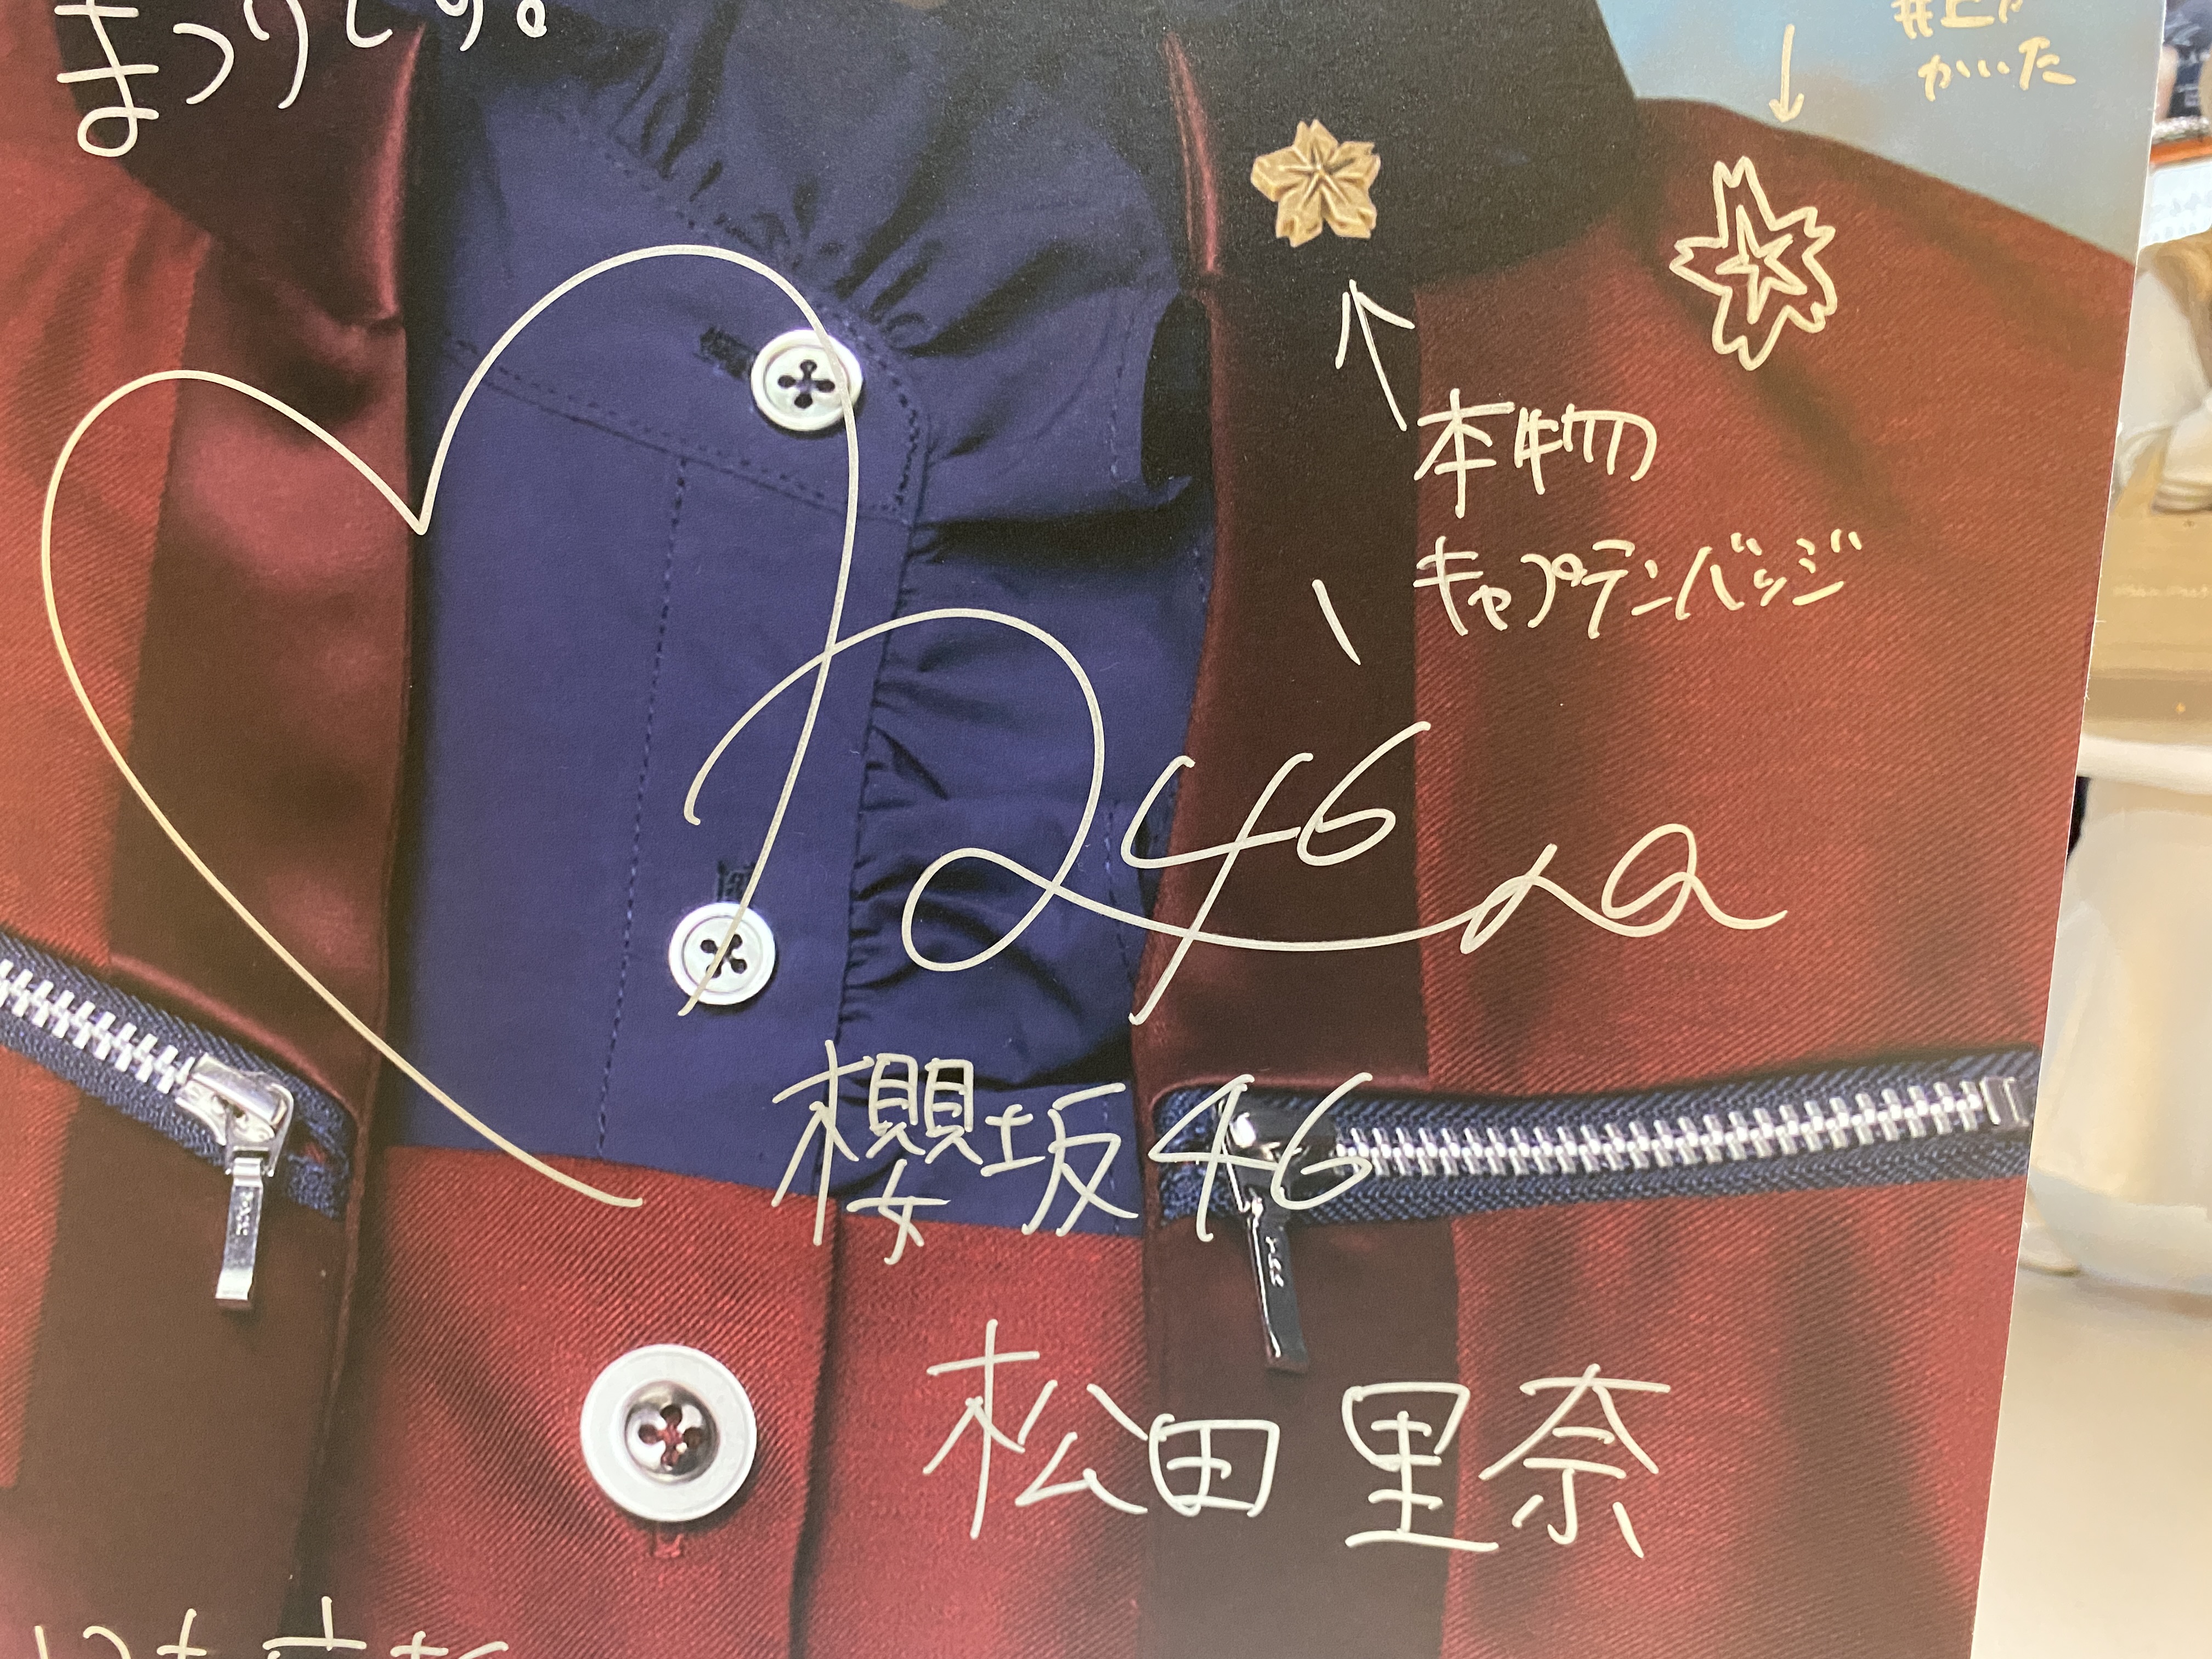 まつりです。
井上が
かいた
本物
キャプテンバッジ
246
櫻坂46
松田里奈